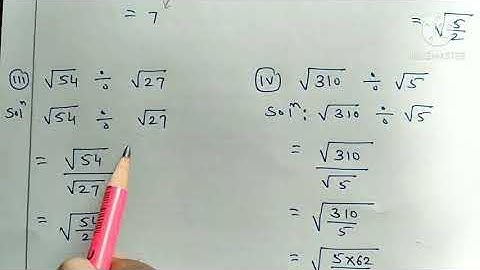 = 7
= √5/2
(iii) √54 ÷ √27
Solⁿ √54 ÷ √27
= √54/√27
= √54/2
(iv) √310 ÷ √5
Solⁿ: √310 ÷ √5
= √310/√5
= √310/5
= √5×62